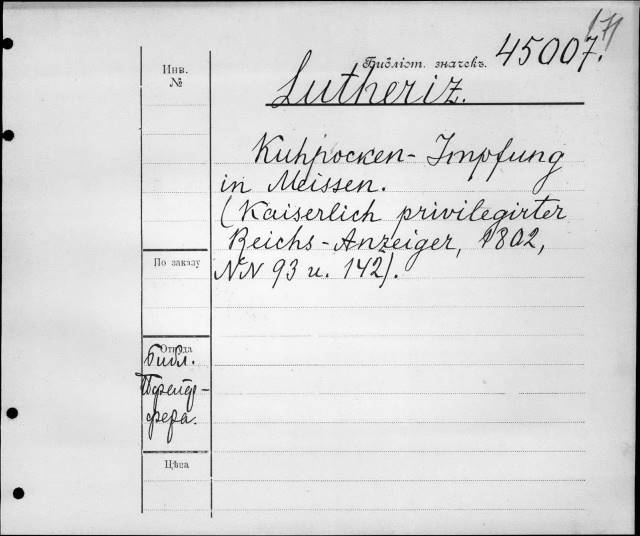 171
Библіот. значекъ. 45007.
Инв.
№
Lutheriz.
Kuhpocken-Impfung
in Meissen.
(Kaiserlich privilegirter
Reichs-Anzeiger, 1802,
NN 93 u. 142).
По заказу
Откуда
Библ.
Цѣна